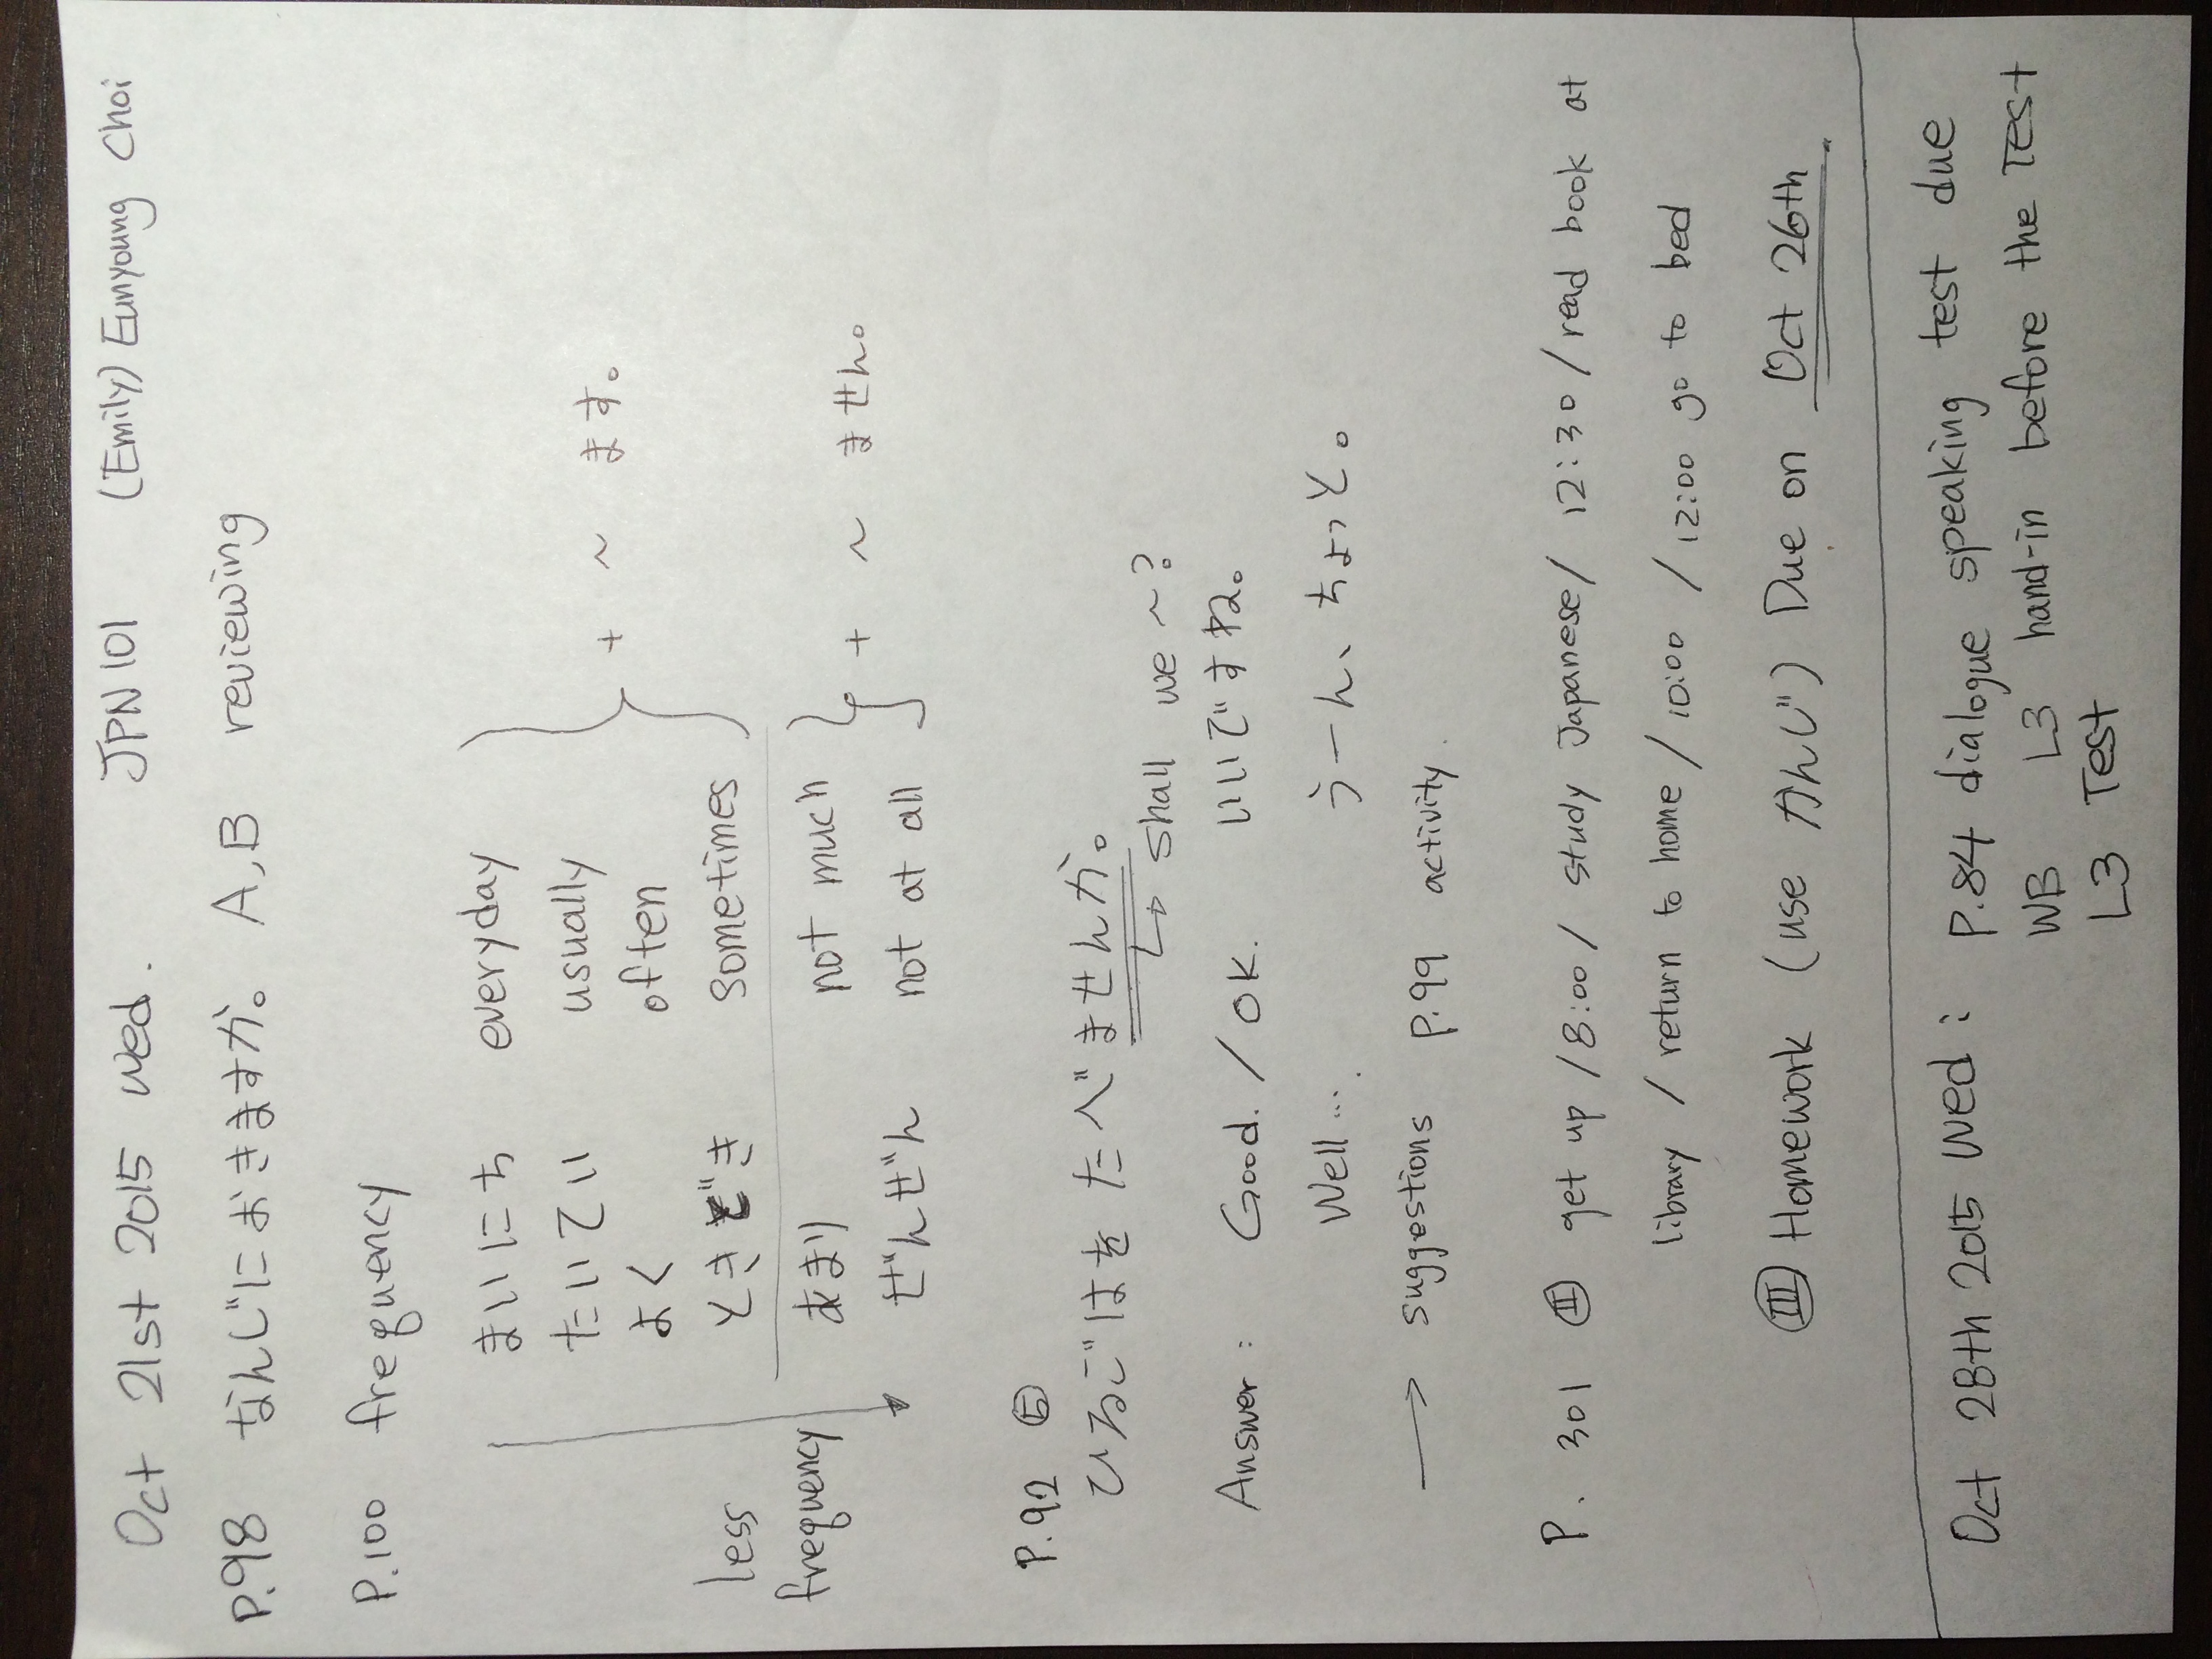 Oct 21st 2015 wed. JPN101 (Emily) Eunyoung Choi
P.98 なんじにおきますか。 A,B reviewing
P.100 frequency
まいにち everyday
たいてい usually + ~ ます。
よく often
less ときどき sometimes
frequency あまり not much + ~ ません。
ぜんぜん not at all
P.92
ひるごはをたべませんか。
↳ shall we ~?
Answer: Good. / OK. いいですね。
Well... うーん、ちょっと。
→ suggestions P.99 activity.
P. 301 Ⅱ get up / 8:00 / study Japanese / 12:30 / read book at
library / return to home / 10:00 / 12:00 go to bed
Ⅲ Homework (use かんじ) Due on Oct 26th.
Oct 28th 2015 Wed: P.84 dialogue speaking test due
WB L3 hand-in before the TEST
L3 TEST